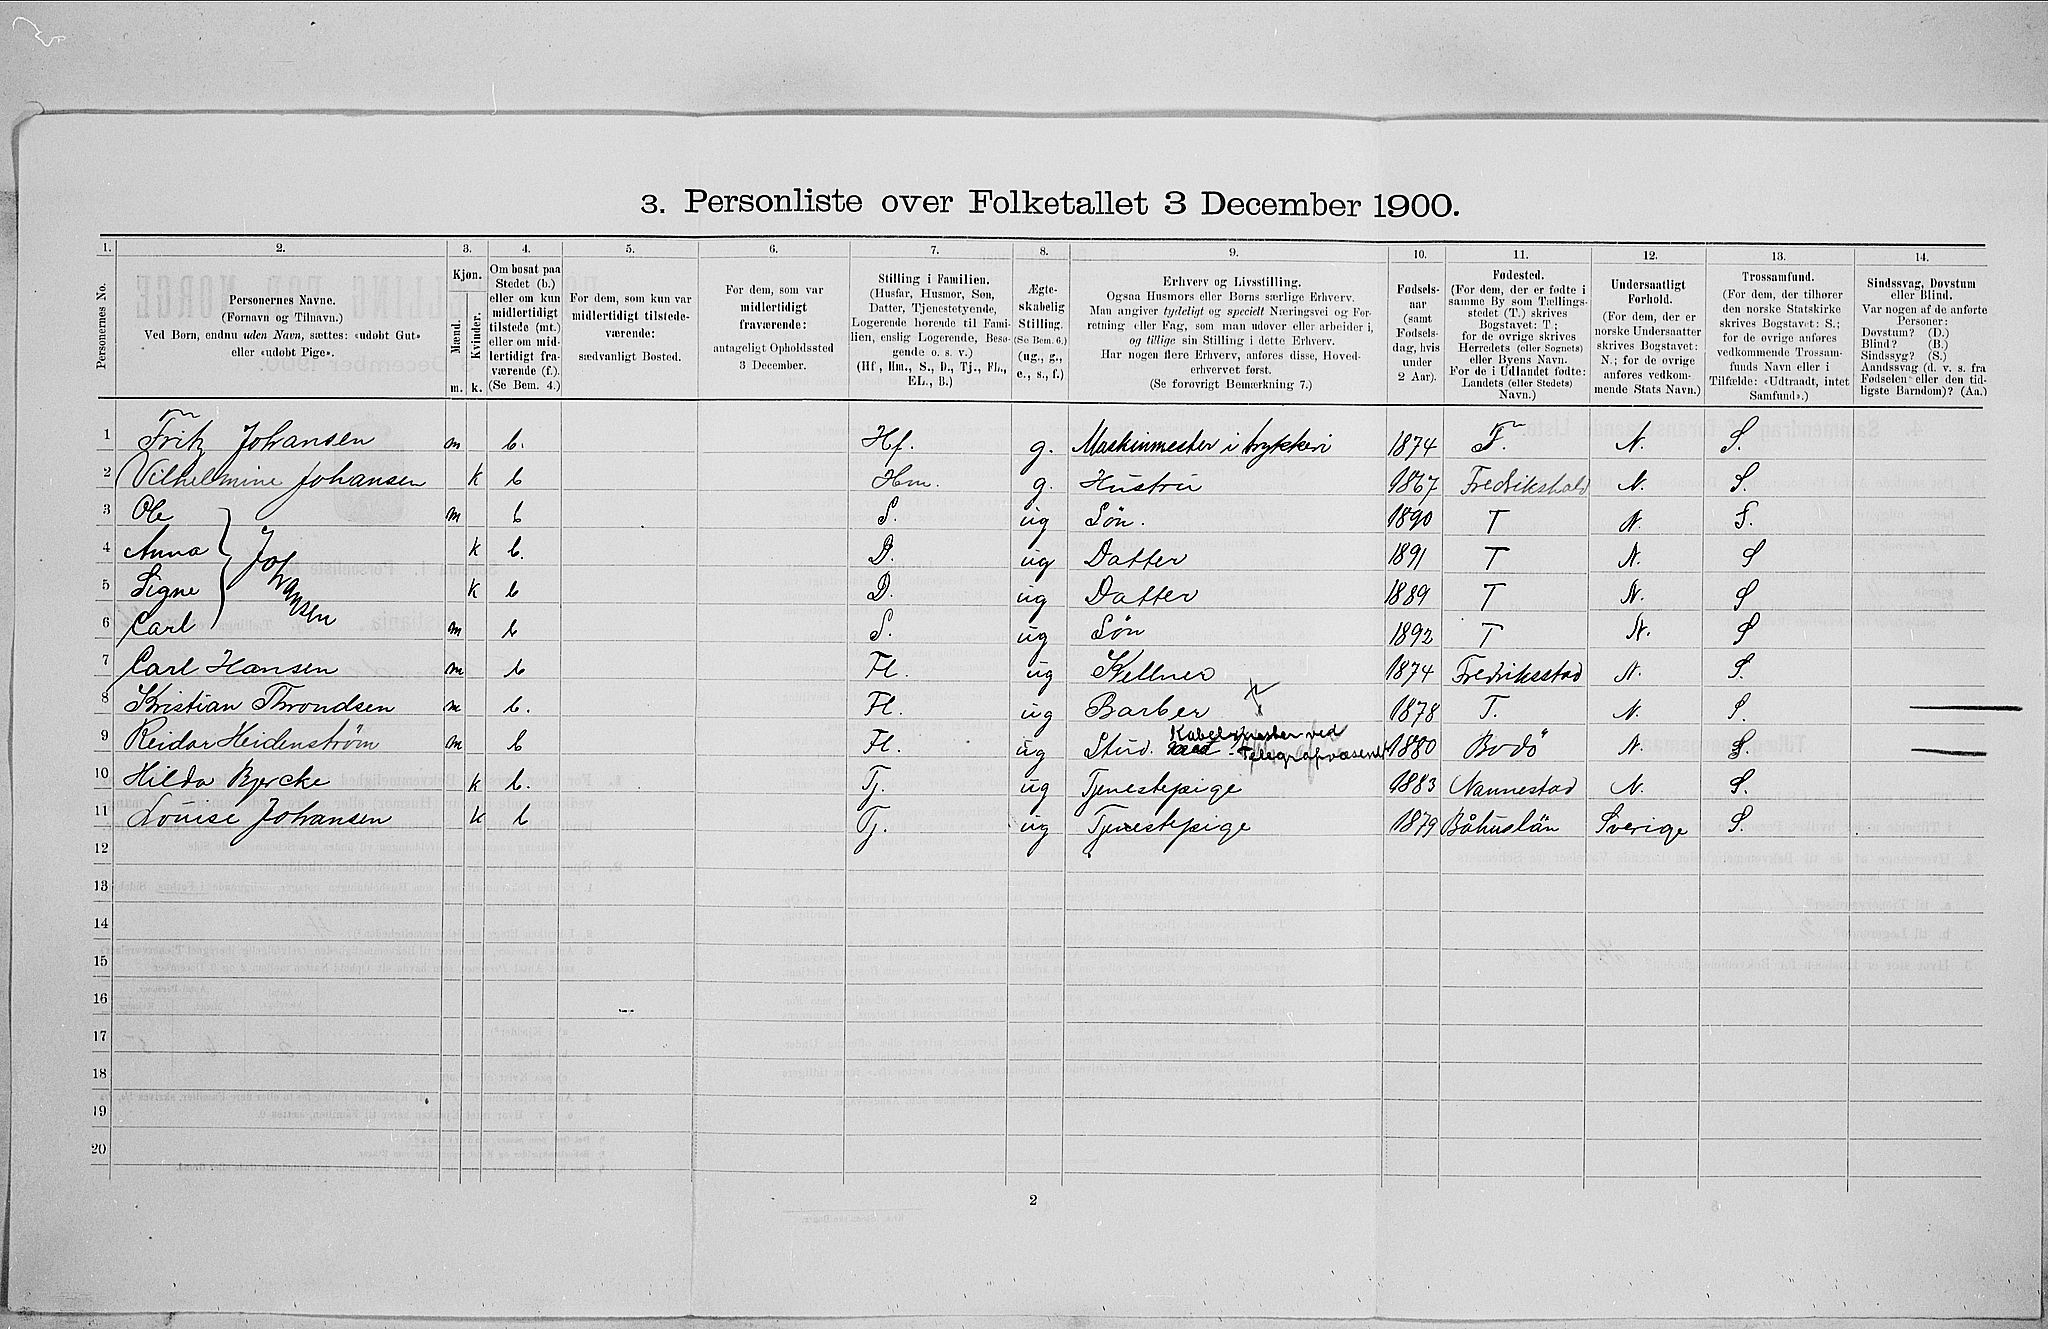 3. Personliste over Folketallet 3 December 1900.
1. 2. 3. 4. 5. 6. 7. 8. 9. 10. 11. 12. 13. 14.
Personernes No.
Personernes Navne.
(Fornavn og Tilnavn.)
Ved Børn, endnu uden Navn, sættes: «udøbt Gut»
eller «udøbt Pige».
Kjøn.
Mænd. Kvinder.
m. k.
Om bosat paa
Stedet (b.)
eller om kun
midlertidigt
tilstede (mt.)
eller om mid-
lertidigt fra-
værende (f.)
(Se Bem. 4.)
For dem, som kun var
midlertidigt tilstede-
værende:
sædvanligt Bosted.
For dem, som var
midlertidigt
fraværende:
antageligt Opholdssted
3 December.
Stilling i Familien.
(Husfar, Husmor, Søn,
Datter, Tjenestetyende,
Logerende hørende til Fami-
lien, enslig Logerende, Besø-
gende o. s. v.)
(Hf, Hm., S., D., Tj., FL.,
EL., B.)
Ægte-
skabelig
Stilling.
(Se Bem. 6.)
(ug., g.,
e., s., f.)
Erhverv og Livsstilling.
Ogsaa Husmors eller Børns særlige Erhverv.
Man angiver tydeligt og specielt Næringsvei og For-
retning eller Fag, som man udøver eller arbeider i,
og tillige sin Stilling i dette Erhverv.
Har nogen flere Erhverv, anføres disse, Hoved-
erhvervet først.
(Se forøvrigt Bemærkning 7.)
Fødsels-
aar
(samt
Fødsels-
dag, hvis
under
2 Aar).
Fødested.
(For dem, der er fødte i
samme By som Tællings-
stedet (T.) skrives
Bogstavet: T;
for de øvrige skrives
Herredets (eller Sognets)
eller Byens Navn.
For de i Udlandet fødte:
Landets (eller Stedets)
Navn.)
Undersaatligt
Forhold.
(For dem, der er
norske Undersaatter
skrives Bogstavet:
N.; for de øvrige
anføres vedkom-
mende Stats Navn.)
Trossamfund.
(For dem, der tilhører
den norske Statskirke
skrives Bogstavet: S.;
for de øvrige anføres
vedkommende Trossam-
funds Navn eller i
Tilfælde: «Udtraadt, intet
Samfund».)
Sindssvag, Døvstum
eller Blind.
Var nogen af de anførte
Personer:
Døvstum? (D.)
Blind? (B.)
Sindssyg? (S.)
Aandssvag (d. v. s. fra
Fødselen eller den tid-
ligste Barndom)? (Aa.)
1 Fritz Johansen m b. Hf. g. Maskinmester i trykkeri 1874 T. N. S.
2 Vilhelmine Johansen k b Hm. g. Hustru 1867 Fredrikshald N. S.
3 Ole m b S. ug Søn. 1890 T N. S.
4 Anna k b. D. ug Datter 1891 T N. S
Johansen
5 Signe k b D. ug Datter 1889 T N. S
6 Carl m b S. ug Søn 1892 T N. S
7 Carl Hansen m b Fl. ug Kellner 1874 Fredriksstad N. S.
8 Kristian Throndsen m b. Fl. ug Barber 1878 T. N. S.
9 Reidar Heidenstrøm m b Fl. ug Stud. Kabelmester ved Telegrafvæsenet 1880 Bodö N. S.
10 Hilda Bjercke k b. Tj. ug Tjenestepige 1883 Nannestad N. S.
11 Louise Johansen k b Tj. ug Tjenestepige 1879 Båhuslän Sverige S.
12
13
14
15
16
17
18
19
20
2